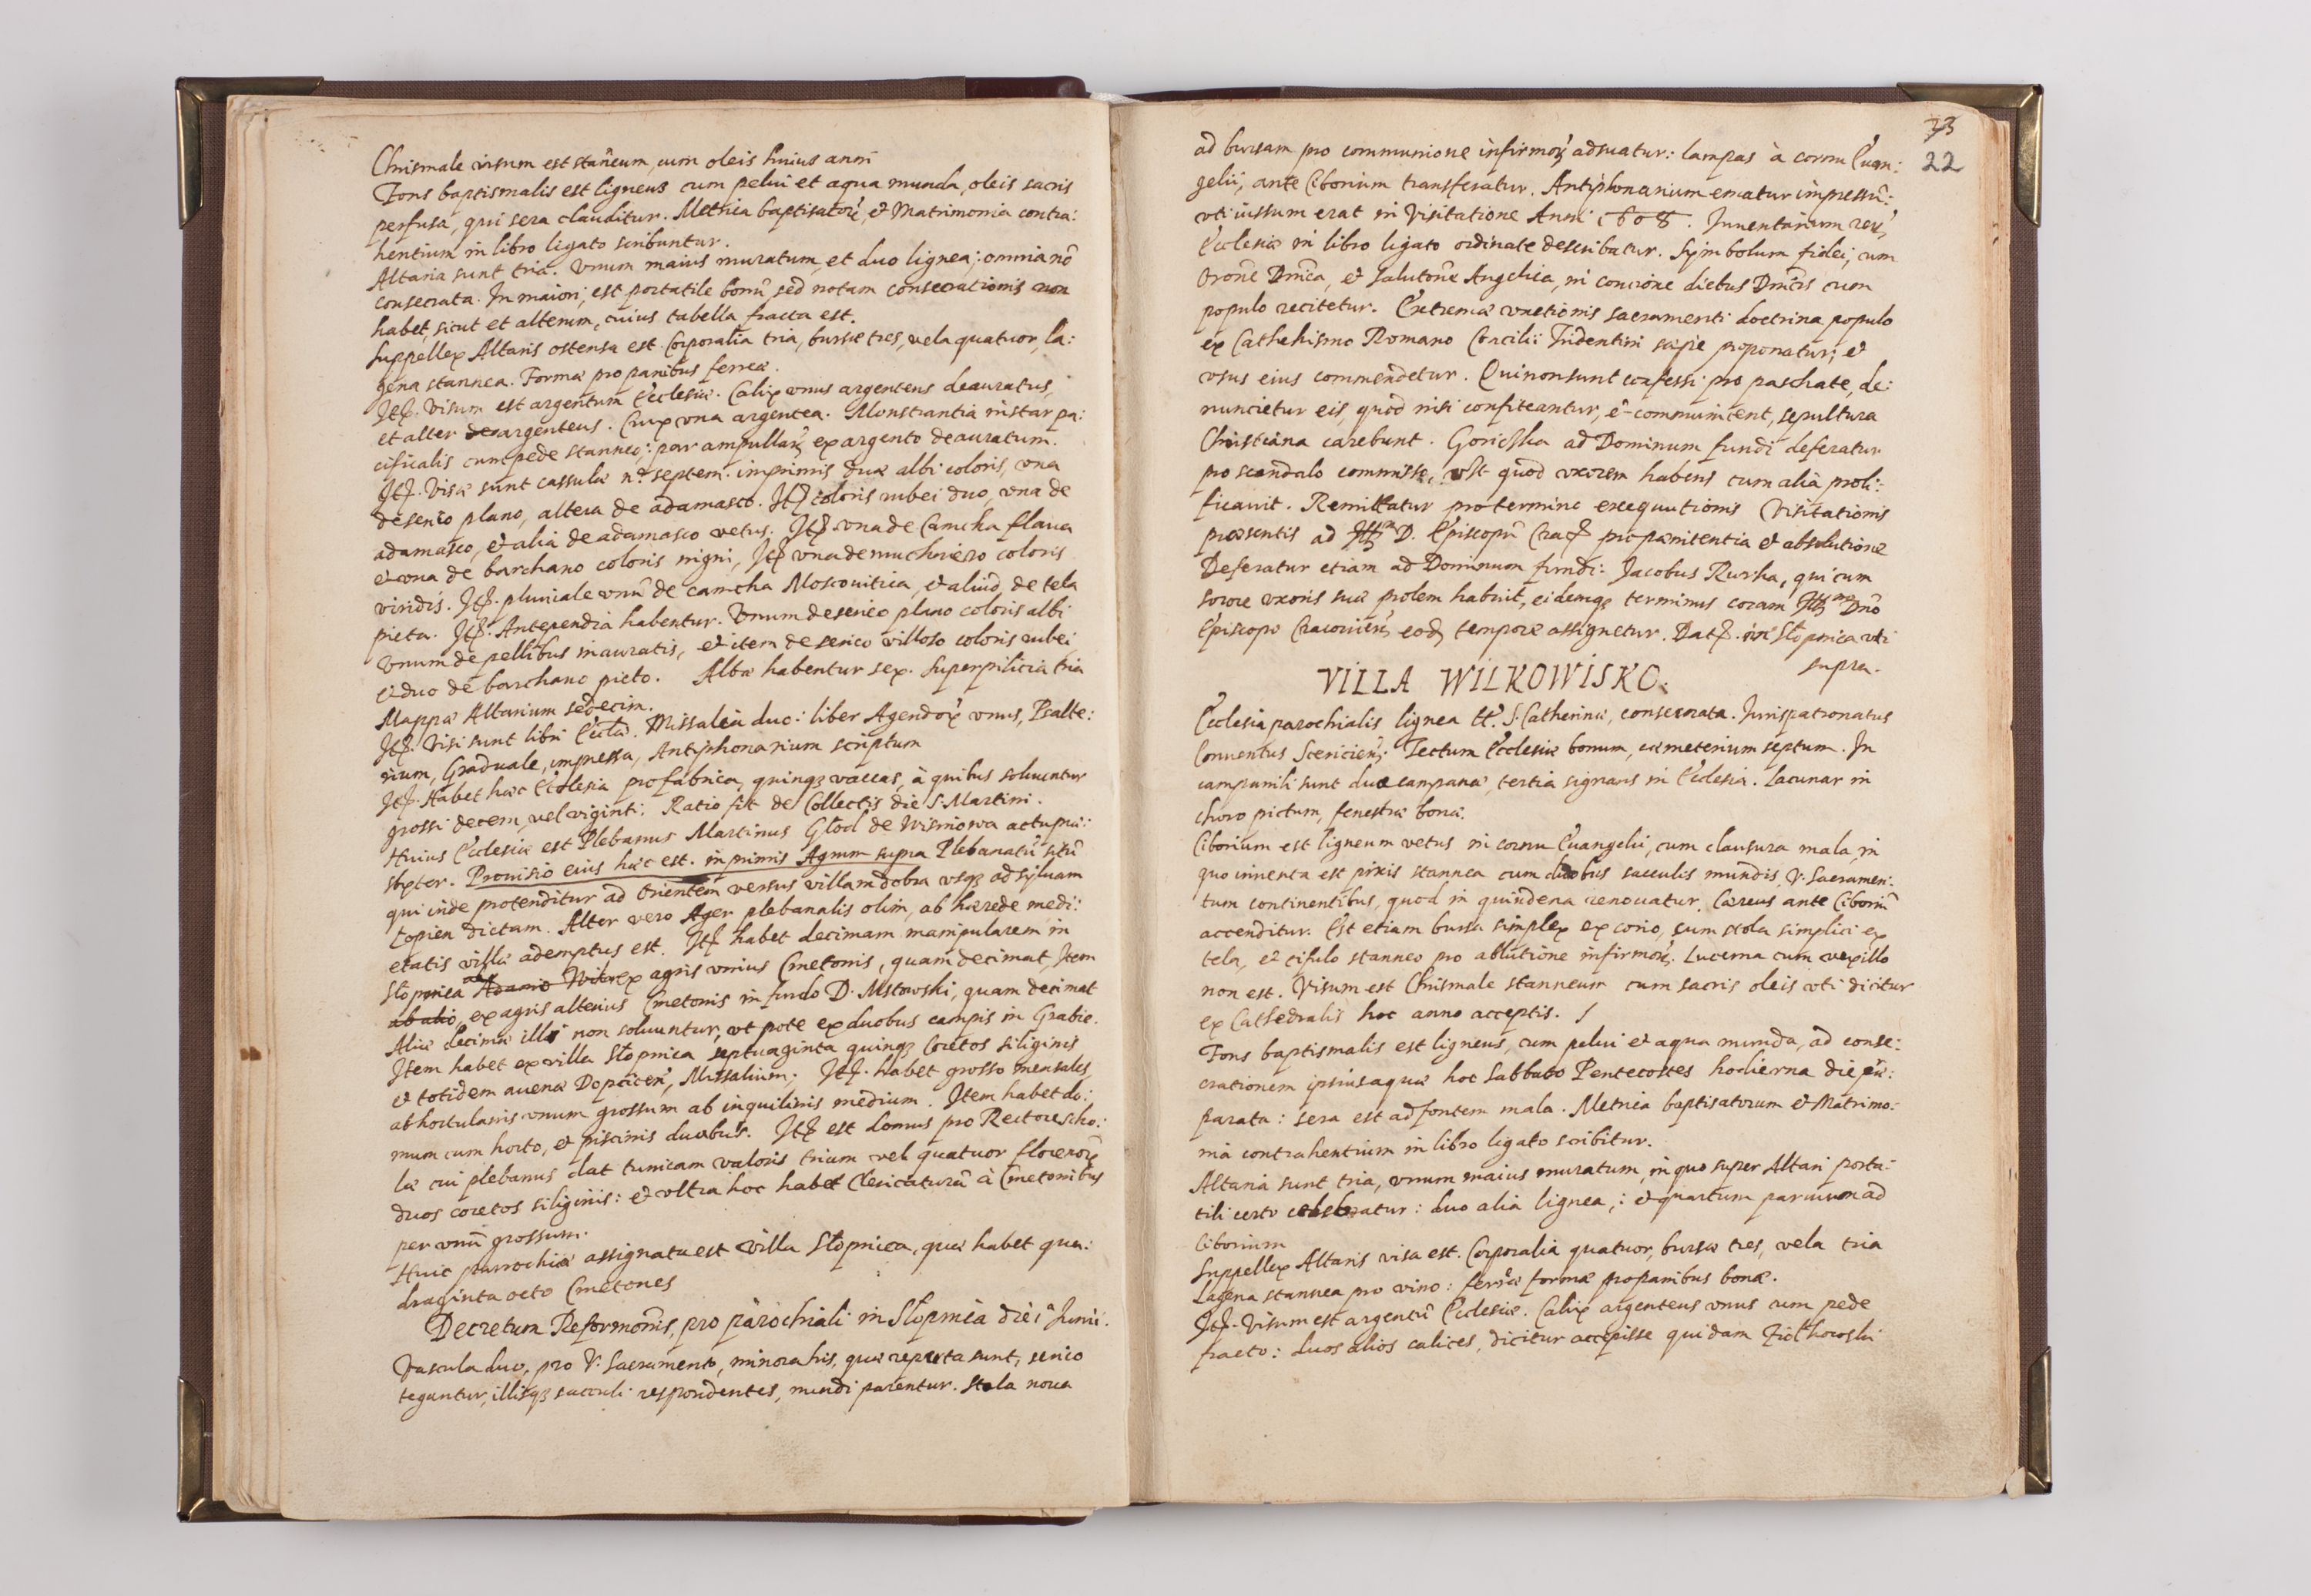 Chrismale visum est stañeum, cum oleis huius anni
Fons baptismalis est ligneus cum pelui et aqua munda, oleis sacris
perfusa, qui sera clauditur. Metrica baptisatorũ, et Matrimonia contra:
hentium in libro ligato scribuntur.
Altaria sunt tria. Vnum maius muratum, et duo lignea; omnia nõ
consecrata. In maiori, est portatile bonũ sed notam consecrationis non
habet, sicut et alterum, cuius tabella fracta est.
Suppellex Altaris ostensa est. Corporalia tria, bursæ tres, vela quatuor, la:
gena stannea. Formæ pro panibus ferreæ.
Itẽ. Visum est argentum Ecclesiæ. Calix vnus argenteus deauratus,
et alter argenteus. Crux vna argentea. Monstrantia instar pa:
cificalis cum pede stanneo; par ampullarũ ex argento deauratum.
Itẽ. Visæ sunt cassulæ nº. septem. imprimis duæ albi coloris, vna
de serico plano, altera de adamasco. Itẽ coloris rubei duo, vna de
adamasco, et alia de adamasco vetus. Itẽ. vna de Camcha flaua
et vna de barchano coloris nigri, Itẽ vna de muchiero coloris
viridis. Itẽ. pluuiale vnũ de camcha Moscouitica, et aliud, de tela
picta. Itẽ. Antependia habentur. Vnum de serico plano coloris albi
vnum de pellibus inauratis, et item de serico villoso coloris rubei
et duo de barchano picto. Albæ habentur sex. Superpilicia tria
Mappæ Altarium sedecim.
Itẽ. Visi sunt libri Eccłæ. Missalia duo: liber Agendorũ vnus, Psalte:
rium, Graduale, impressa, Antiphonarium scriptum
Itẽ. Habet hæc Ecclesia pro fabrica, quinqȝ vaccas, à quibus soluuntur
grossi decem, vel viginti. Ratio fit de Collectis die S. Martini.
Huius Ecclesiæ est Plebanus Martinus Głod de Wisniowa actu præ:
sbyter. Prouisio eius hæc est. inprimis Agrum supra Plebanatũ sitũ
qui inde protenditur ad Orientem versus villam dobra vsqȝ ad syluam
Łopien dictam. Alter vero Ager plebanalis olim, ab hærede medi:
etatis villæ ademptus est. Itẽ habet decimam manipularem in
Słopnica ex agris vnius Cmetonis, quam decimat, Item
ab alio, ex agris alterius Cmetonis in fundo D. Mstowski, quam decimat
Aliæ decimæ illi non soluuntur, vt pote ex duobus campis in Grabie.
Item habet ex villa Słopnica septuaginta quinqȝ Coretos siliginis
et totidem auenæ Dopcicen̄, Missalium; Itẽ. habet grosso mensales,
ab hortulanis vnum grossum ab inquilinis medium. Item habet do:
mum cum horto, et piscinis duabus. Itẽ est domus pro Rectore scho:
læ cui plebanus dat tunicam valoris trium vel quatuor florenorũ
duos coretos siliginis: et vltra hoc habet Clericaturã à Cmetonibus
per vnũ grossum.
Huic parrochiæ assignata est villa Słopnica, quæ habet qua:
draginta octo Cmetones
Decretum Reformõnis, pro parochiali in Słopnica die 1ª Junii.
Vascula duo, pro V. Sacramento, minora his, quæ reperta sunt, serico
tegantur, illisqȝ sacculi respondentes, mundi parentur. Stola noua
73
22
ad bursam pro communione infirmorũ adsuatur: lampas à cornu Euan:
gelii, ante Ciborium transferatur. Antiphonarium ematur impressũ:
vti iussum erat in Visitatione Anni 1608. Inuentarium rerũ
Ecclesiæ in libro ligato ordinate describatur. Symbolum fidei, cum
Orõne Dñica, et Salutõne Angelica, in concione diebus Dñicis cum
populo recitetur. Extremæ vnctionis sacramenti doctrina populo
ex Cathehismo Romano Concilii Tridentini sæpe proponatur; et
vsus eius commendetur. Qui non sunt confessi pro paschate, de:
nuncietur eis, quod nisi confiteantur, et communicent, sepultura
Christiana carebunt. Goriczka ad Dominum fundi deferatur
pro scandalo commisso, quod vxorem habens cum alia proli:
ficauit. Remittatur pro termino exequutionis Visitationis
præsentis ad Illm̃ D. Episcopũ Crac̃ pro pænitentia et absolutione
Deferatur etiam ad Dominum fundi: Jacobus Rurka, qui cum
sorore vxoris suæ prolem habuit, eidemqȝ terminus coram Illmo Dño
Episcopo Cracouien̄ eod̃ tempore assignetur. Datẽ. in Słopnica vti
supra.
VILLA WILKOWISKO.
Ecclesia parochialis lignea tt. S. Catherinæ, consecrata. Jurispatronatus
Conuentus Sciricien̄; Tectum Ecclesiæ bonum, cæmeterium septum. In
campanili sunt duæ campanæ, tertia signans in Ecclesia. Lacunar in
choro pictum, fenestræ bonæ.
Ciborium est ligneum vetus in cornu Euangelii, cum clausura mala, in
quo inuenta est pixis stannea cum duobus sacculis mundis, V. Sacramen:
tum continentibus, quod in quindena renouatur. Cæreus ante Ciboriũ
accenditur. Est etiam bursa simplex ex corio, cum stola simplici ex
tela, et cifulo stanneo pro ablutione infirmorũ. Lucerna cum vexillo
non est. Visum est Chrismale stanneum cum sacris oleis vti dicitur
ex Cathedralis hoc anno acceptis. /
Fons baptismalis est ligneus, cum pelui et aqua munda, ad conse:
crationem ipsius aquæ hoc Sabbato Pentecostes hodierna die præ:
parata: sera est ad fontem mala. Metrica baptisatorum et Matrimo:
nia contrahentium in libro ligato scribitur.
Altaria sunt tria, vnum maius muratum, in quo super Altari porta:
tili certo celebratur: duo alia lignea,: et quartum paruum ad
Ciborium
Suppellex Altaris visa est. Corporalia quatuor, bursæ tres, vela tria
Lagena stannea pro vino: ferreæ formæ pro panibus bonæ.
Itẽ. Visum est argentũ Ecclesiæ. Calix argenteus vnus cum pede
fracto: duos alios calices, dicitur accepisse quidam